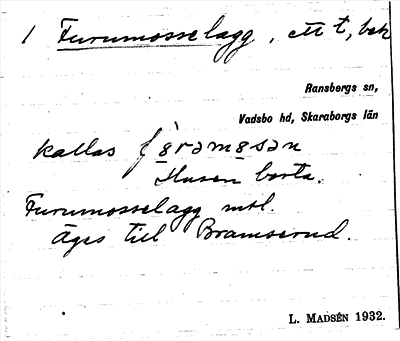 1 Furumosselagg, ett t, bek
Ransbergs sn,
Vadsbo hd, Skaraborgs län
kallas
Husen borta.
Furumosselagg mtl.
äges till Bramserud.
L. MADSÉN 1932.